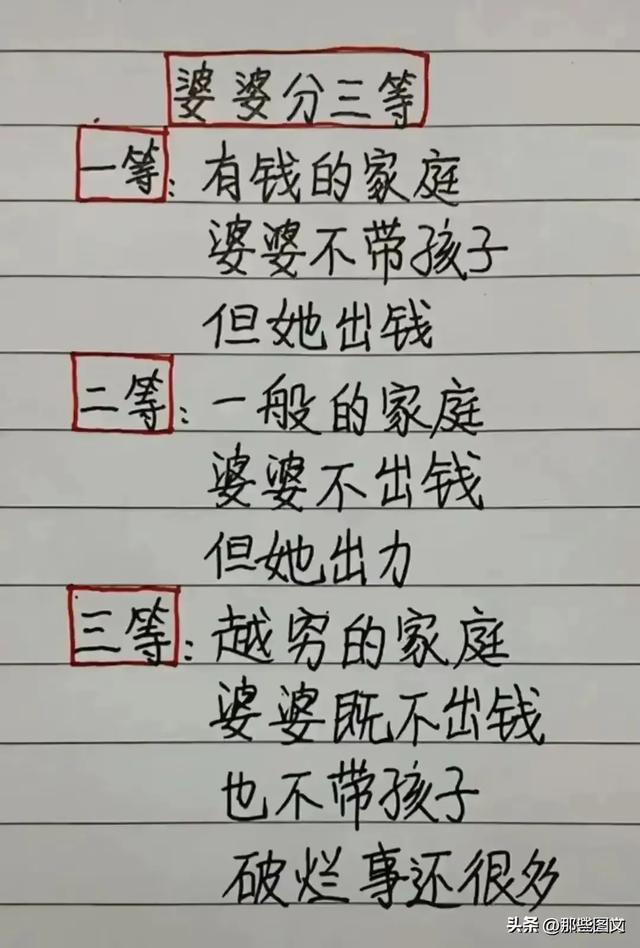 婆婆分三等
一等：有钱的家庭
婆婆不带孩子
但她出钱
二等：一般的家庭
婆婆不出钱
但她出力
三等：越穷的家庭
婆婆既不出钱
也不带孩子
破烂事还很多
头条 @那些图文